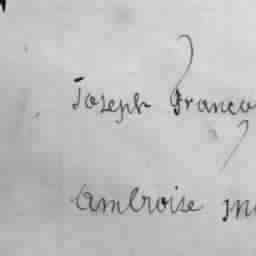 Joseph Franco
Ambroise m